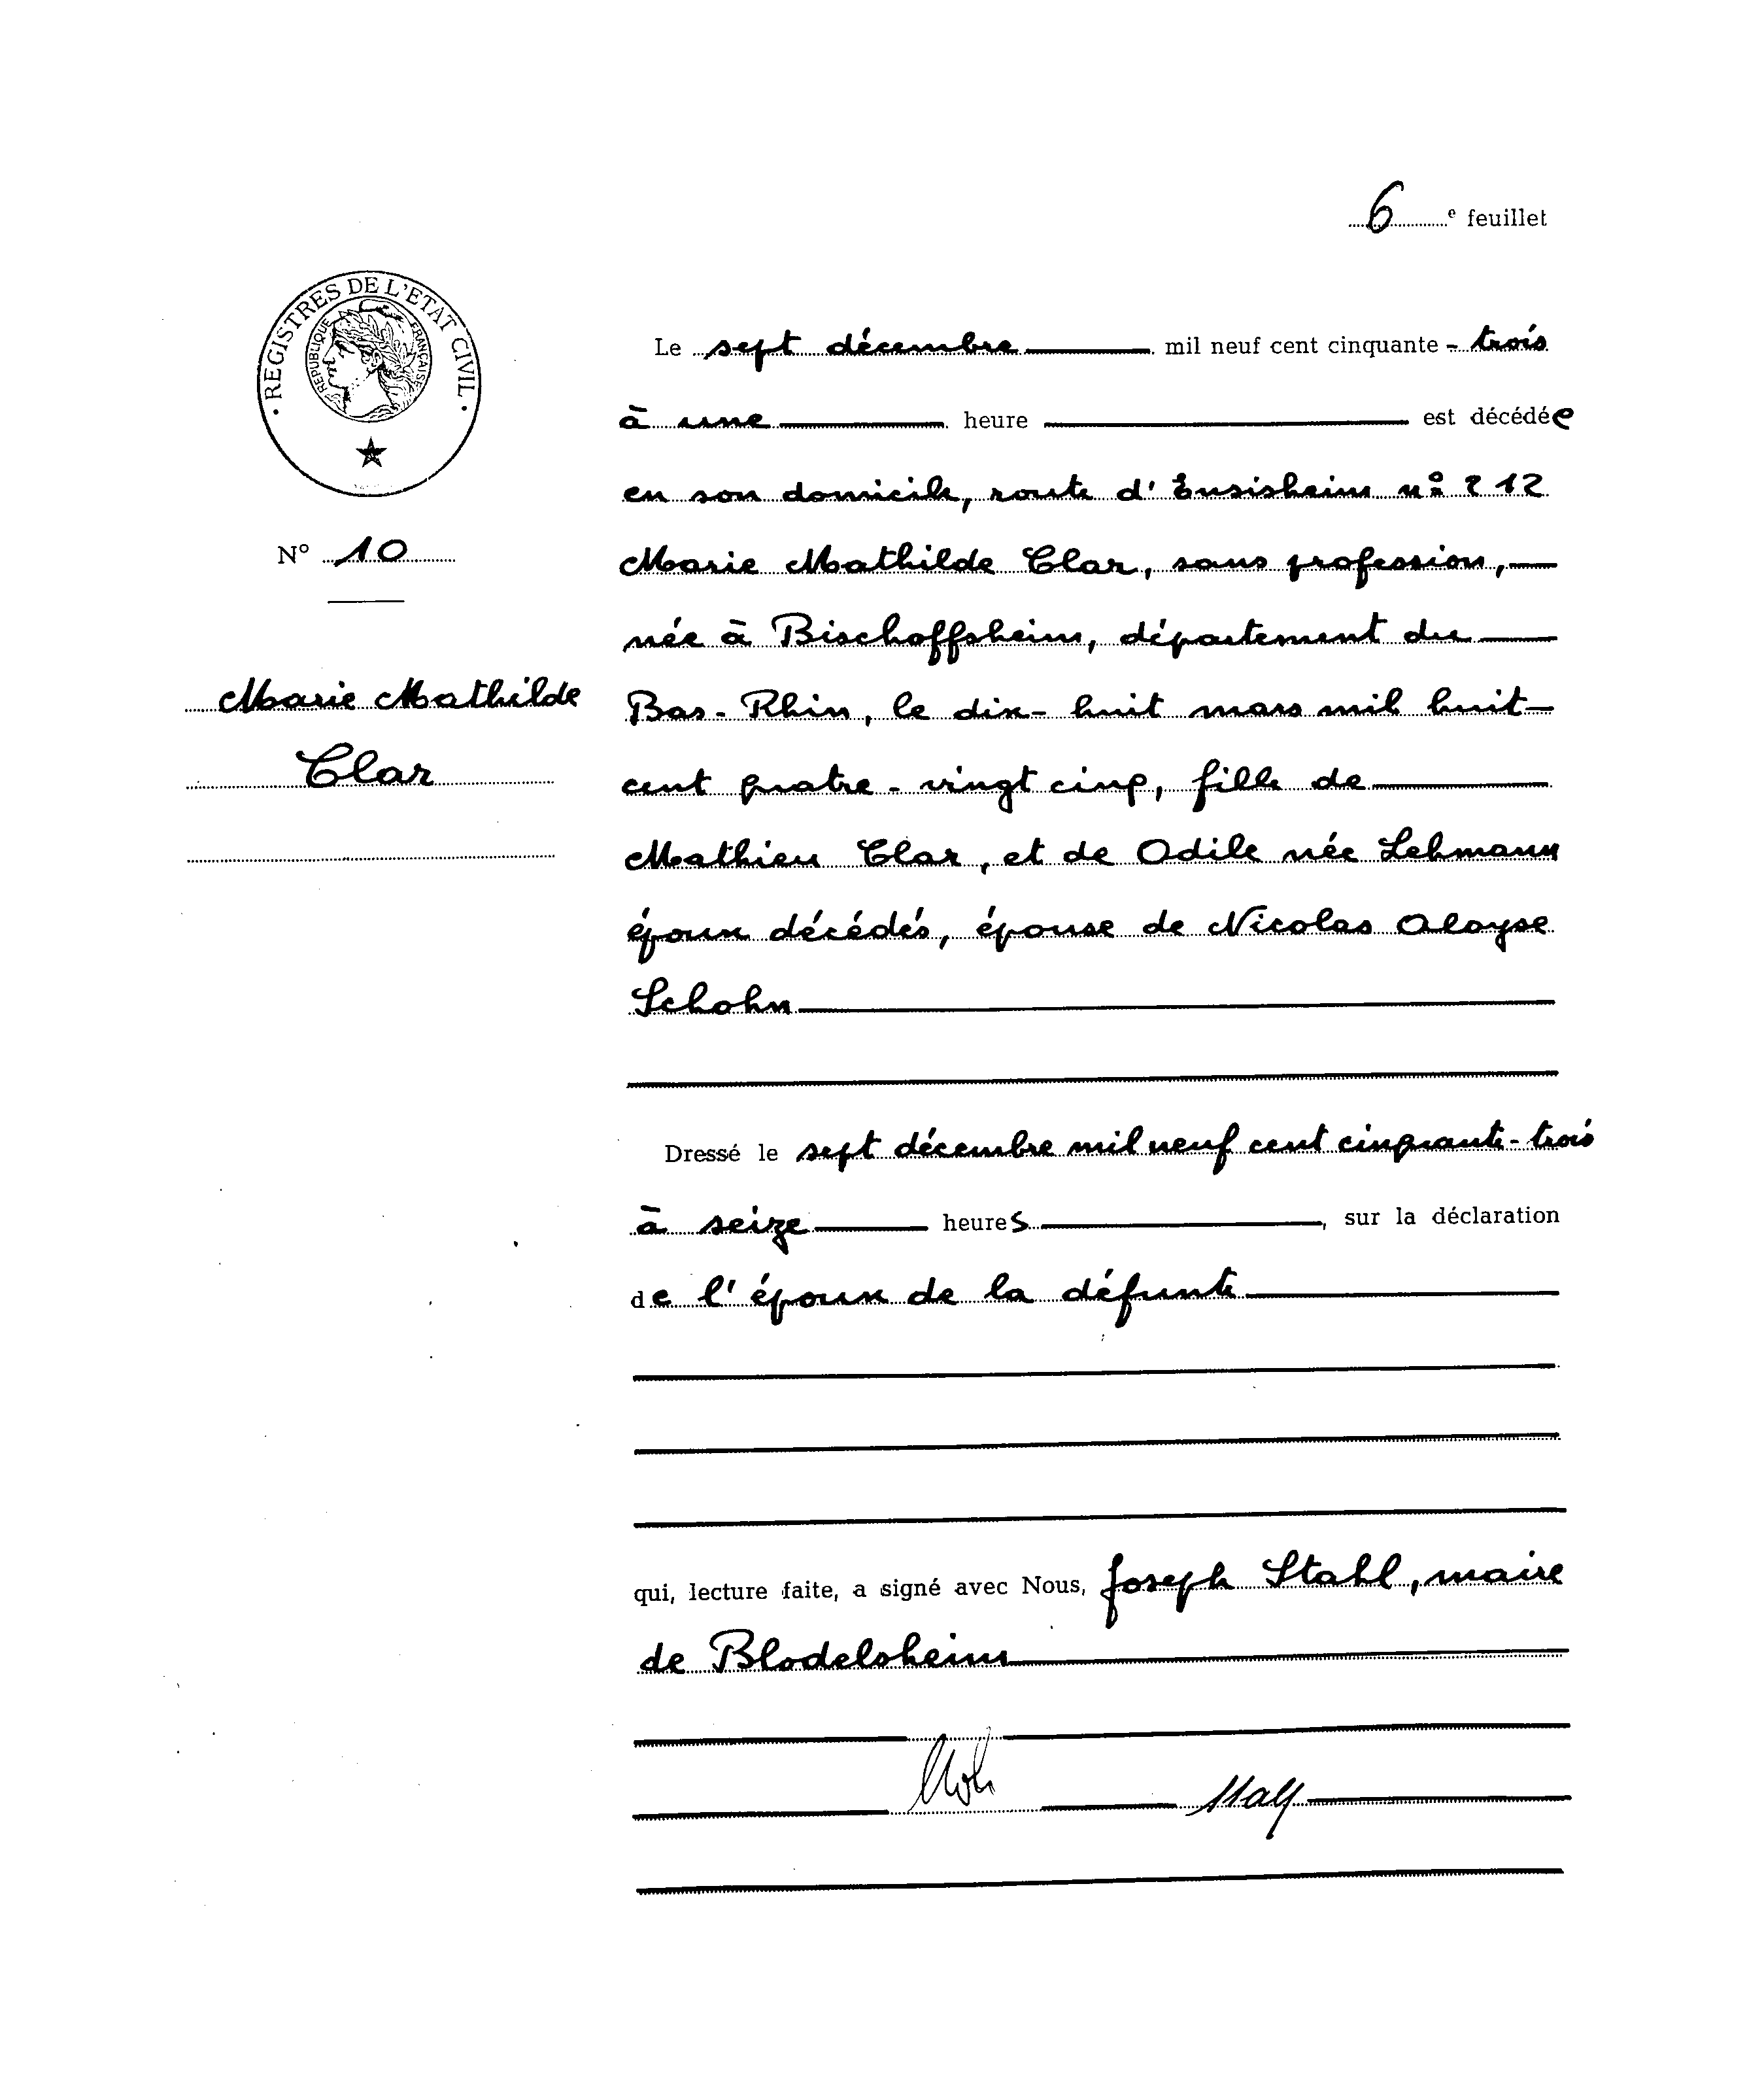 6 e feuillet
REGISTRES DE L'ETAT CIVIL
REPUBLIQUE FRANÇAISE
Le sept décembre mil neuf cent cinquante - trois
à une heure est décédée
en son domicile, route d'Ensisheim nº 212
N° 10
Marie Mathilde Clar, sans profession,
née à Bischoffsheim, département du
Marie Mathilde
Bas-Rhin, le dix-huit mars mil huit
Clar
cent quatre-vingt cinq, fille de
Mathieu Clar, et de Odile née Lehmann
époux décédés, épouse de Nicolas Aloyse
Schohn
Dressé le sept décembre mil neuf cent cinquante-trois
à seize heures, sur la déclaration
de l'époux de la défunte
qui, lecture faite, a signé avec Nous, Joseph Stahl, maire
de Blodelsheim